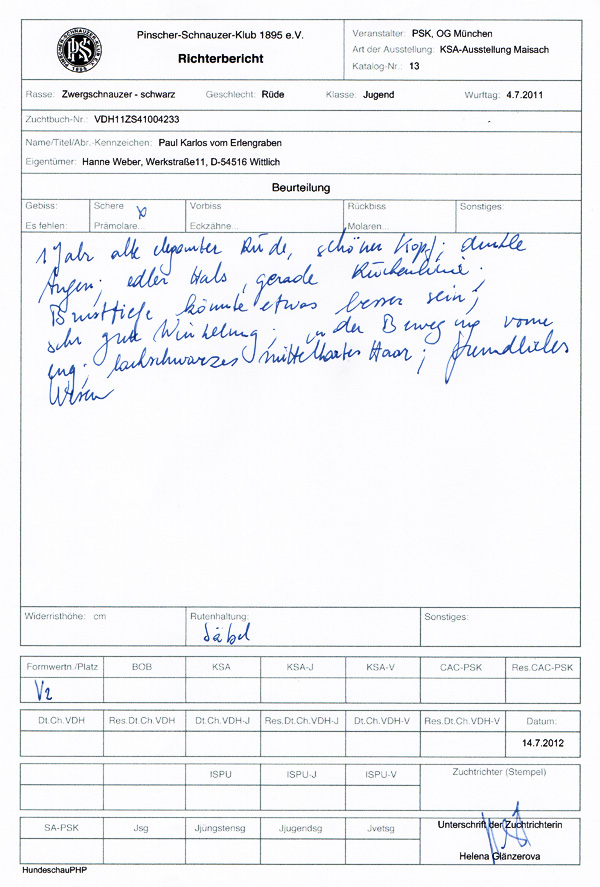 PINSCHER-SCHNAUZER-KLUB E.V.
PSK
1895
Pinscher-Schnauzer-Klub 1895 e.V.
Richterbericht
Veranstalter: PSK, OG München
Art der Ausstellung: KSA-Ausstellung Maisach
Katalog-Nr.: 13
Rasse: Zwergschnauzer - schwarz Geschlecht: Rüde Klasse: Jugend Wurftag: 4.7.2011
Zuchtbuch-Nr.: VDH11ZS41004233
Name/Titel/Abr.-Kennzeichen: Paul Karlos vom Erlengraben
Eigentümer: Hanne Weber, Werkstraße11, D-54516 Wittlich
Beurteilung
Gebiss: Schere x Vorbiss Rückbiss Sonstiges:
Es fehlen: Prämolare... Eckzähne... Molaren...
1 Jahr alte eleganter Rüde, schöner Kopf; dunkle
Augen; edler Hals, gerade Rückenlinie;
Brusttiefe könnte etwas besser sein;
sehr gute Winkelung; in der Bewegung vorne
eng; lackschwarzes mittelhartes Haar; freundliches
Wesen
Widerristhöhe: cm Rutenhaltung: Sonstiges:
Säbel
Formwertn./Platz BOB KSA KSA-J KSA-V CAC-PSK Res.CAC-PSK
V2
Dt.Ch.VDH Res.Dt.Ch.VDH Dt.Ch.VDH-J Res.Dt.Ch.VDH-J Dt.Ch.VDH-V Res.Dt.Ch.VDH-V Datum:
14.7.2012
ISPU ISPU-J ISPU-V Zuchtrichter (Stempel)
SA-PSK Jsg Jjüngstensg Jjugendsg Jvetsg Unterschrift der Zuchtrichterin
Helena Glänzerova
HundeschauPHP